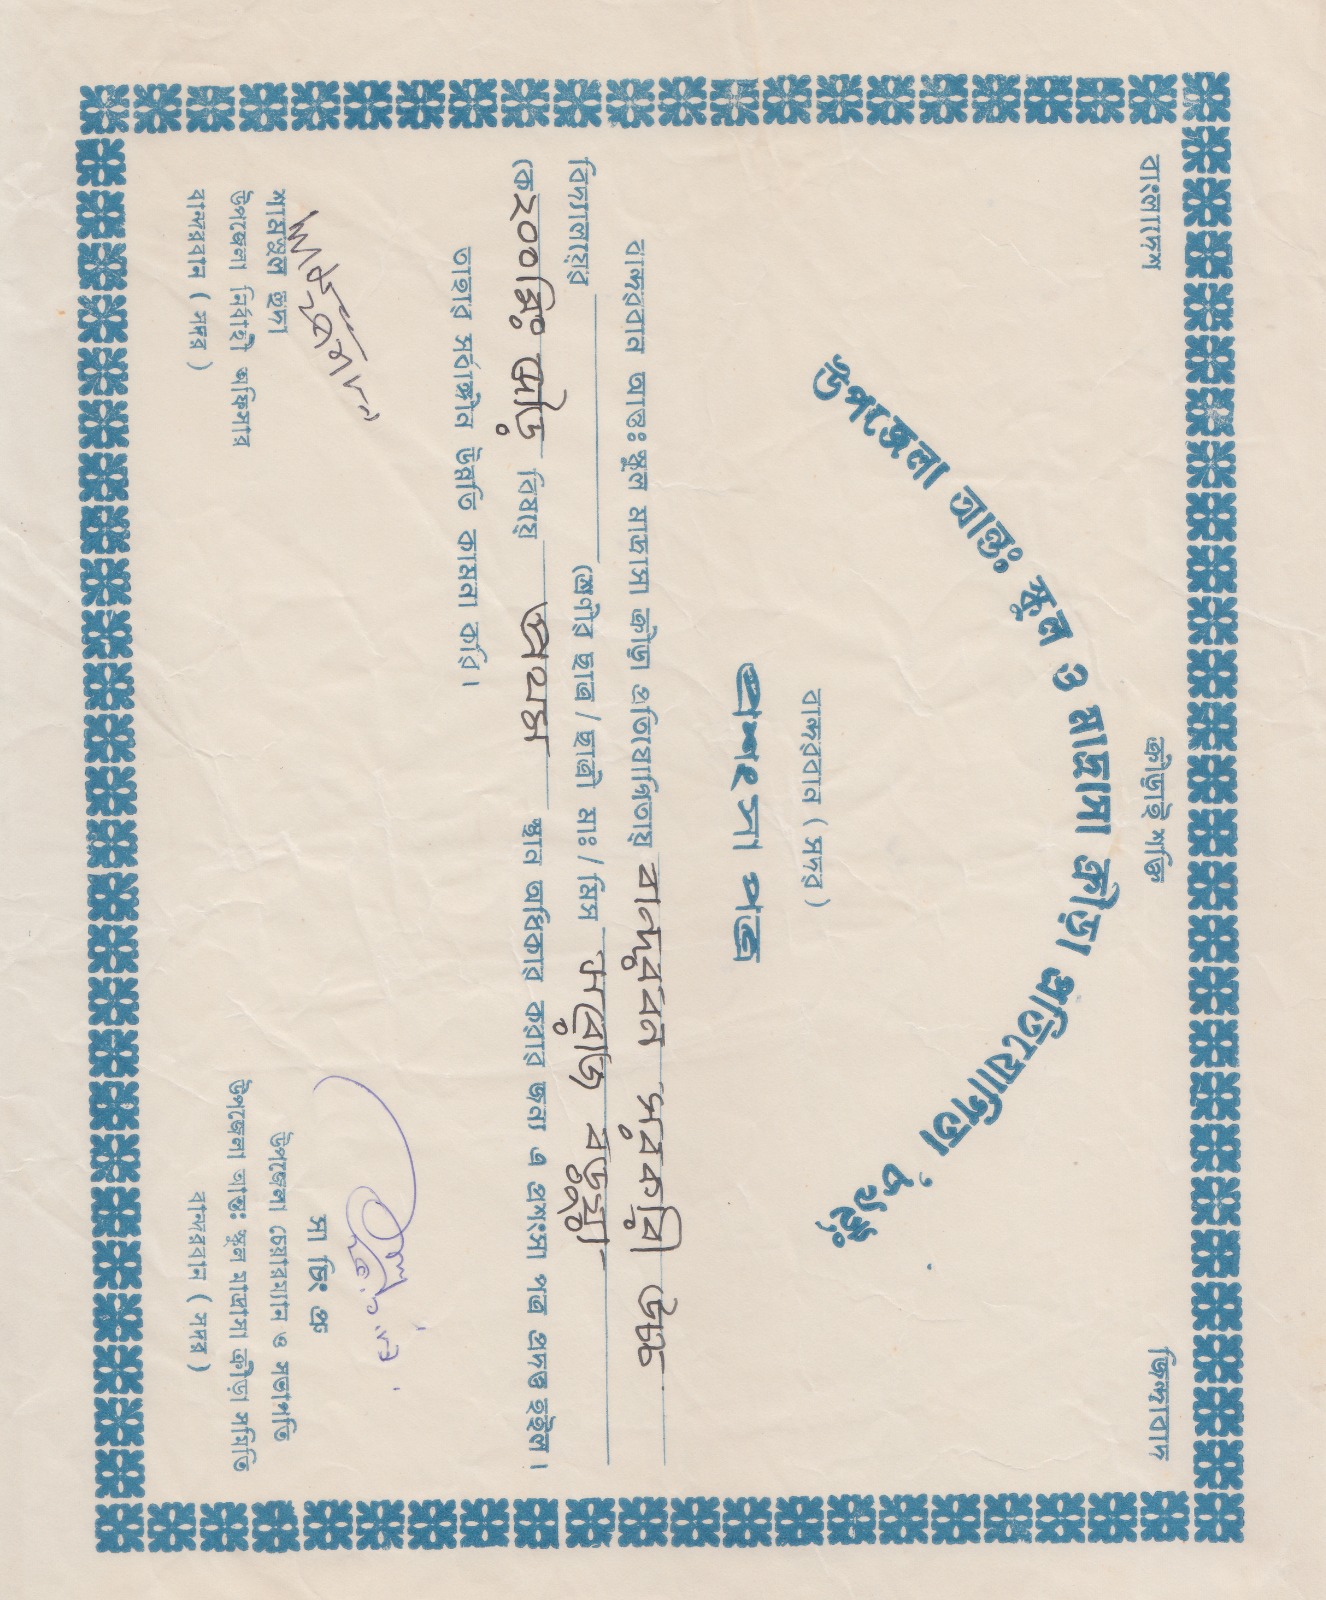 বাংলাদেশ ক্রীড়াই শক্তি জিন্দাবাদ
উপজেলা আন্তঃ স্কুল ও মাদ্রাসা ক্রীড়া প্রতিযোগিতা '৮৯ইং
বান্দরবান ( সদর )
প্রশংসা পত্র
বান্দরবান আন্তঃ স্কুল মাদ্রাসা ক্রীড়া প্রতিযোগিতায় বান্দরবন সরকারী উচ্চ
বিদ্যালয়ের শ্রেণীর ছাত্র / ছাত্রী মাঃ / মিস সরোজ বড়ুয়া
কে ২০০ মিঃ দৌড় বিষয়ে প্রথম স্থান অধিকার করার জন্য এ প্রশংসা পত্র প্রদত্ত হইল।
তাহার সর্বাঙ্গীন উন্নতি কামনা করি।
শামসুল হুদা
উপজেলা নির্বাহী অফিসার
বান্দরবান ( সদর )
সা চিং প্রু
উপজেলা চেয়ারম্যান ও সভাপতি
উপজেলা আন্তঃ স্কুল মাদ্রাসা ক্রীড়া সমিতি
বান্দরবান ( সদর )